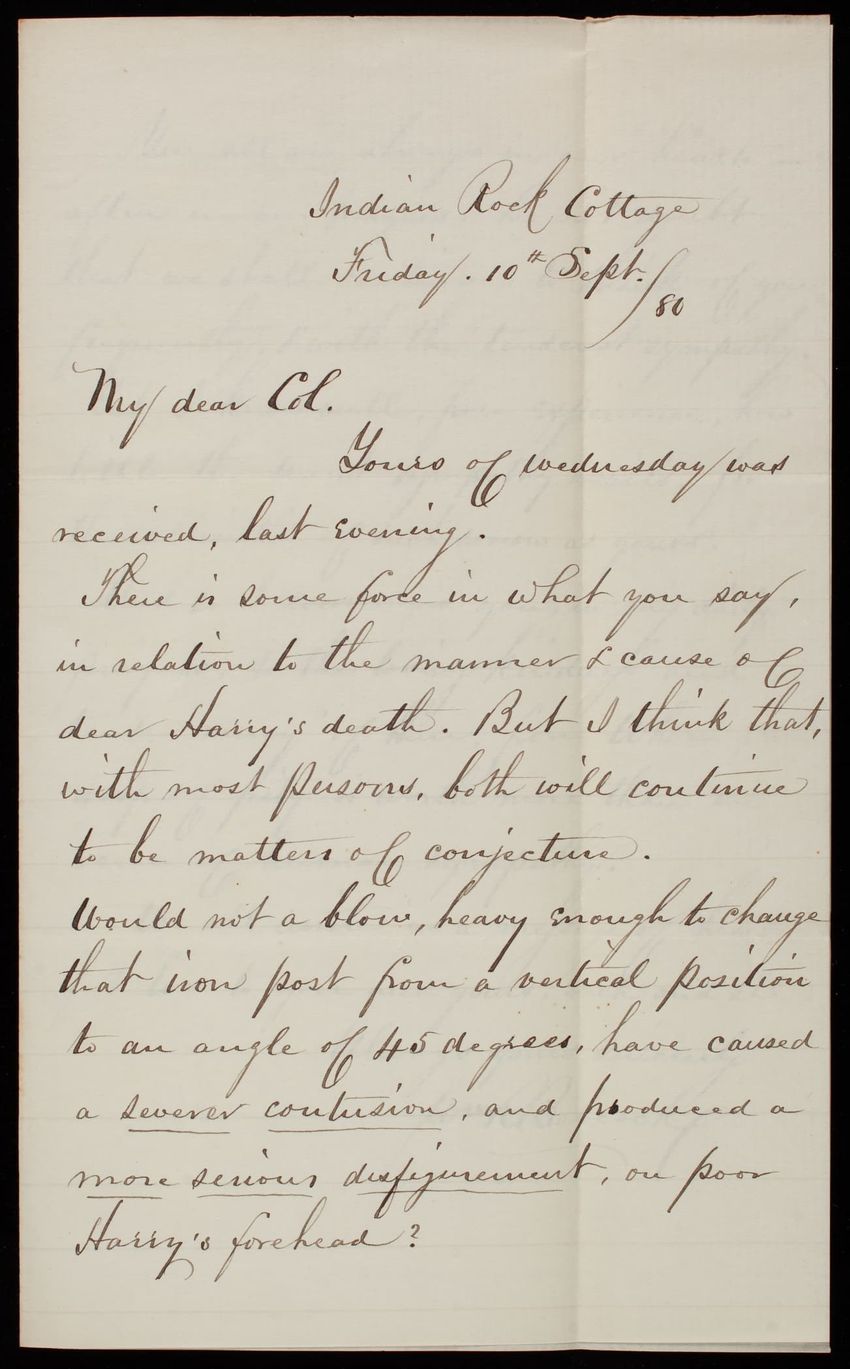 Indian Rock Cottage
Friday. 10th Sept. /80
My dear Col.
Yours of Wednesday was
received, last evening.
There is some force in what you say,
in relation to the manner & cause of
dear Harry's death. But I think that,
with most persons, both will continue
to be matters of conjecture.
Would not a blow, heavy enough to change
that iron post from a vertical position
to an angle of 45 degrees, have caused
a severer contusion, and produced a
more serious disfigurement, on poor
Harry's forehead?